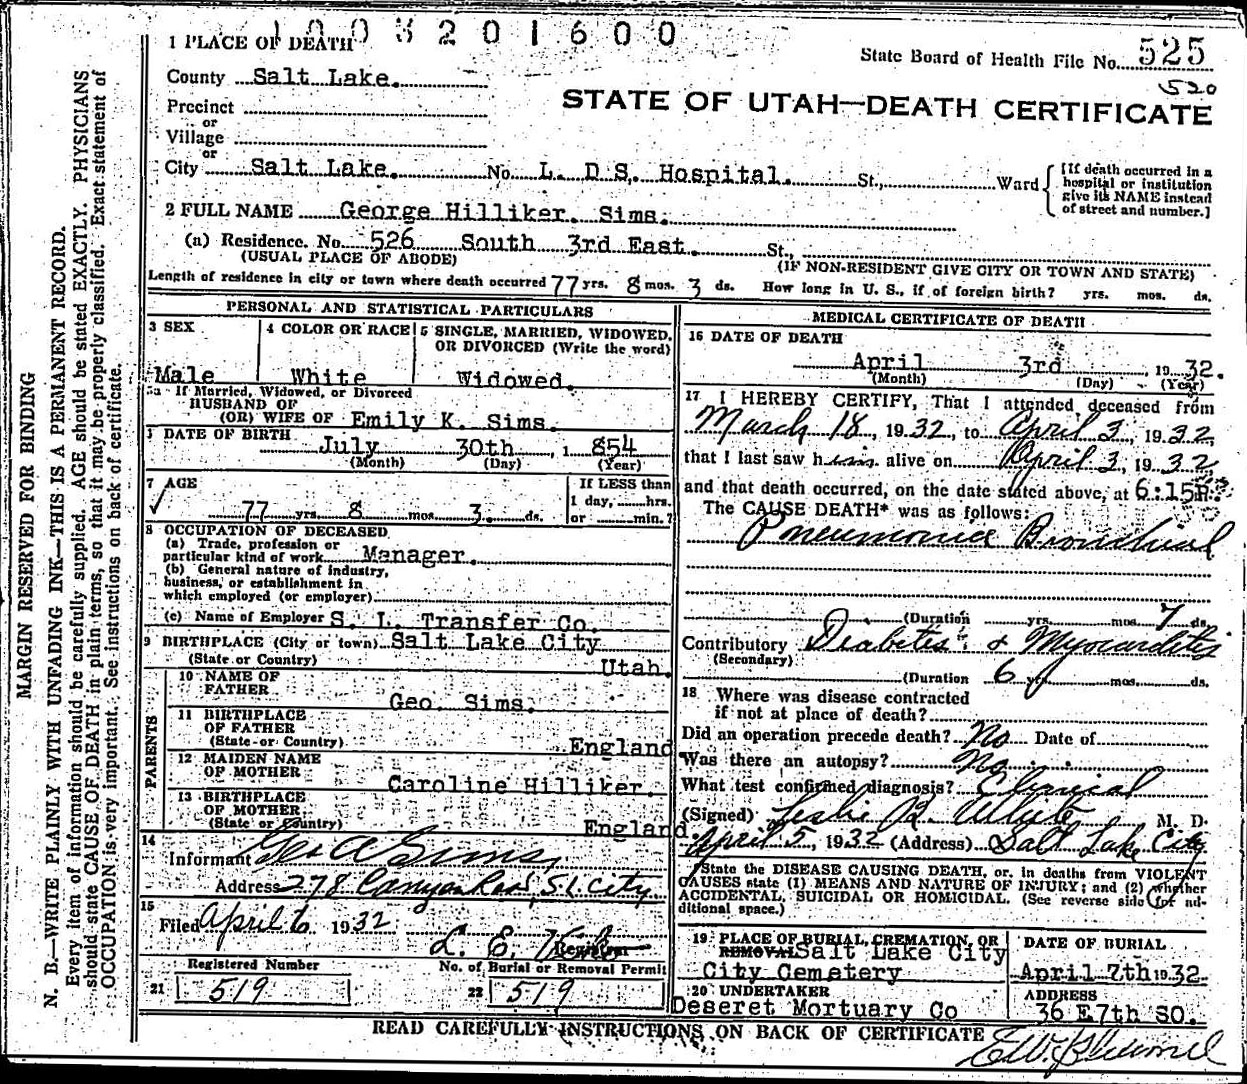 1003201600
1 PLACE OF DEATH
State Board of Health File No. 525
520
County Salt Lake.
STATE OF UTAH—DEATH CERTIFICATE
Precinct
or
Village
or
City Salt Lake. No. L. D S. Hospital. St., Ward
[If death occurred in a hospital or institution give its NAME instead of street and number.]
2 FULL NAME George Hilliker. Sims.
(a) Residence. No. 526 South 3rd East. St.,
(USUAL PLACE OF ABODE) (IF NON-RESIDENT GIVE CITY OR TOWN AND STATE)
Length of residence in city or town where death occurred 77 yrs. 8 mos. 3 ds. How long in U. S., if of foreign birth? yrs. mos. ds.
PERSONAL AND STATISTICAL PARTICULARS
3 SEX 4 COLOR OR RACE 5 SINGLE, MARRIED, WIDOWED,
OR DIVORCED (Write the word)
Male White Widowed.
5a If Married, Widowed, or Divorced
HUSBAND OF
(OR) WIFE OF Emily K. Sims.
DATE OF BIRTH July 30th, 1 854
(Month) (Day) (Year)
7 AGE If LESS than
1 day, hrs.
77 yrs. 8 mos. 3. ds. or min.?
8 OCCUPATION OF DECEASED
(a) Trade, profession or
particular kind of work Manager.
(b) General nature of industry,
business, or establishment in
which employed (or employer)
(c) Name of Employer S. L. Transfer Co.
9 BIRTHPLACE (City or town) Salt Lake City
(State or Country) Utah.
PARENTS
10 NAME OF
FATHER Geo. Sims.
11 BIRTHPLACE
OF FATHER
(State or Country) England
12 MAIDEN NAME
OF MOTHER Caroline Hilliker.
13 BIRTHPLACE
OF MOTHER
(State or Country) England.
14
Informant Geo A Sims
Address 278 Canyon Road, S L City
15
Filed April 6 1932
L. E.
Registrar
Registered Number No. of Burial or Removal Permit
21 519 22 519
MEDICAL CERTIFICATE OF DEATH
16 DATE OF DEATH
April 3rd 1932.
(Month) (Day) (Year)
17 I HEREBY CERTIFY, That I attended deceased from
March 18, 1932, to April 3, 1932,
that I last saw him alive on April 3, 1932
and that death occurred, on the date stated above, at 6:15P.
The CAUSE DEATH* was as follows:
Pneumonia Bronchial
(Duration yrs. mos. 7 ds.
Contributory Diabetis & Myocarditis
(Secondary)
(Duration 6 yrs. mos. ds.
18 Where was disease contracted
if not at place of death?
Did an operation precede death? No Date of
Was there an autopsy? No
What test confirmed diagnosis? Clinical
(Signed) Leslie White M. D.
April 5, 1932 (Address) Salt Lake City
*State the DISEASE CAUSING DEATH, or, in deaths from VIOLENT
CAUSES state (1) MEANS AND NATURE OF INJURY; and (2) whether
ACCIDENTAL, SUICIDAL OR HOMICIDAL. (See reverse side for ad-
ditional space.)
19 PLACE OF BURIAL, CREMATION, OR DATE OF BURIAL
REMOVAL Salt Lake City
City Cemetery April 7th 1932.
20 UNDERTAKER ADDRESS
Deseret Mortuary Co 36 E 7th SO.
READ CAREFULLY INSTRUCTIONS ON BACK OF CERTIFICATE
MARGIN RESERVED FOR BINDING
N. B.—WRITE PLAINLY WITH UNFADING INK—THIS IS A PERMANENT RECORD.
Every item of information should be carefully supplied. AGE should be stated EXACTLY. PHYSICIANS
should state CAUSE OF DEATH in plain terms, so that it may be properly classified. Exact statement of
OCCUPATION is very important. See instructions on back of certificate.